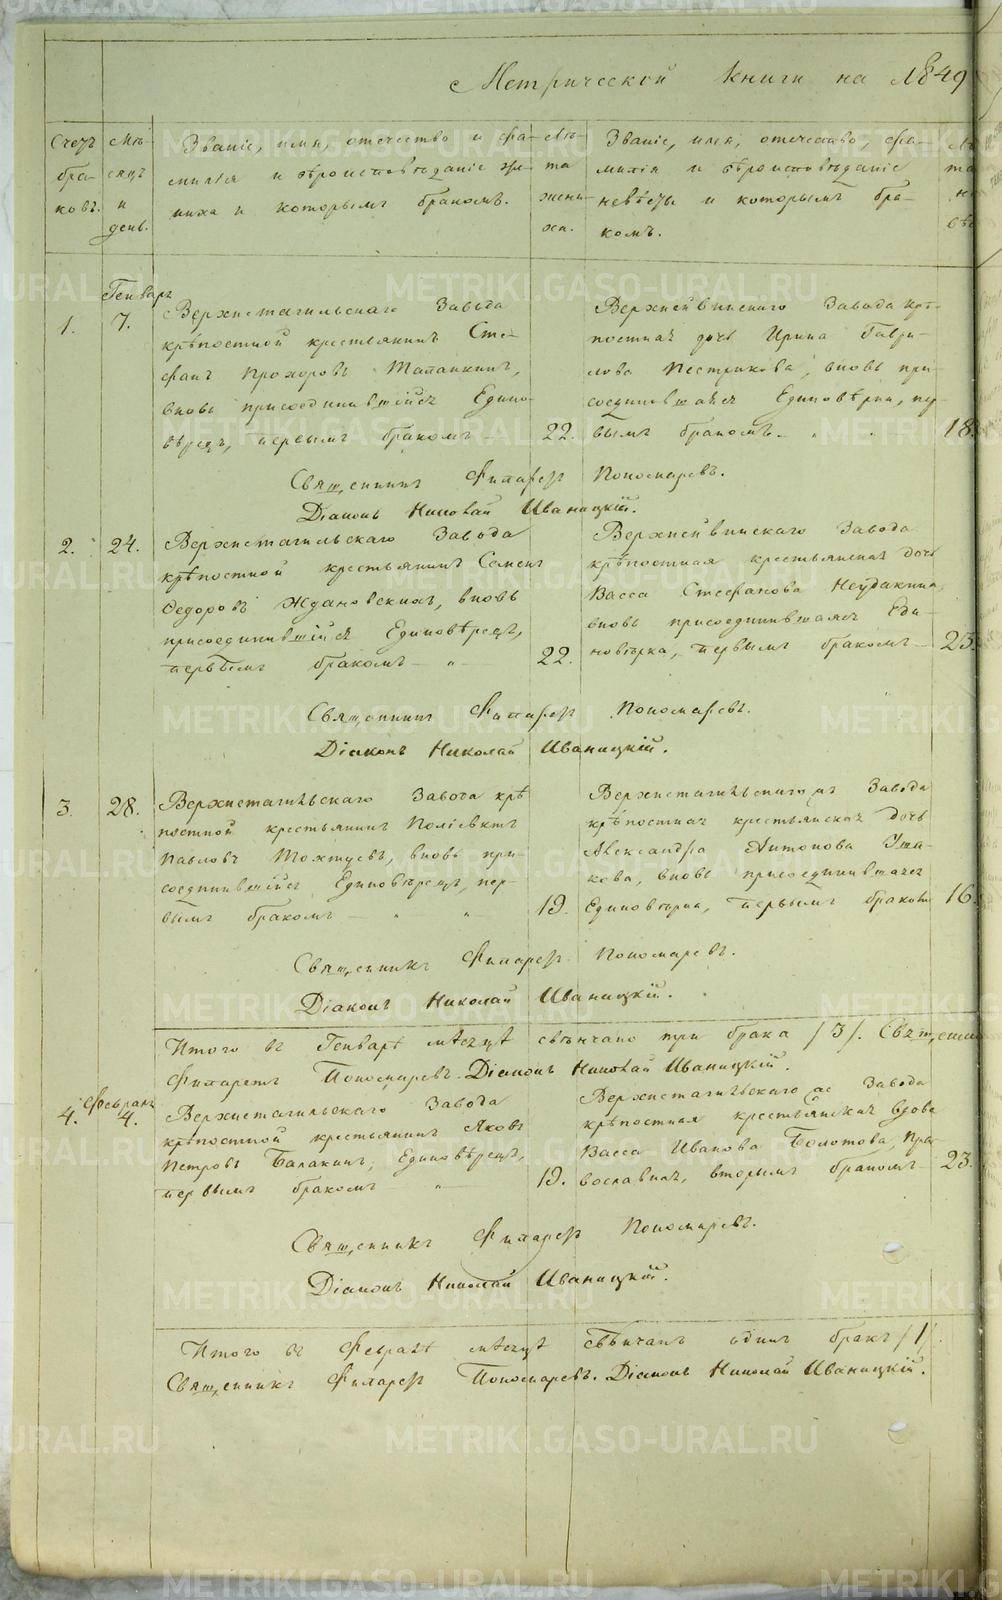 Метрической книги на 1849
Счетъ браковъ.
Мѣсяцъ и день.
Званіе, имя, отечество и фамилія и вѣроисповѣданіе жениха и которымъ бракомъ.
Лѣта жениха.
Званіе, имя, отечество, фамилія и вѣроисповѣданіе невѣсты и которымъ бракомъ.
Генварь
1.
7.
Верхнетагильскаго Завода
крѣпостной крестьянинъ Сте-
фанъ Прохоровъ Матанкинъ,
вновь присоединившійся Едино-
вѣрецъ, первымъ бракомъ
22.
Верхнейвинскаго Завода крѣ-
постная дочь Ирина Гаври-
лова Пестрикова, вновь при-
соединовшаяся Единовѣрка, пер-
вымъ бракомъ.
18.
Священникъ Филаретъ Пономаревъ.
Діаконъ Николай Иваницкій.
2.
24.
Верхнетагильскаго Завода
крѣпостной крестьянинъ Семенъ
Ѳедоровъ Ждановскихъ, вновь
присоединившійся Единовѣрецъ,
первымъ бракомъ
22.
Верхнейвинскаго Завода
крѣпостная крестьянская дочь
Васса Стефанова Неудакина,
вновь присоединившаяся Еди-
новѣрка, первымъ бракомъ
23.
Священникъ Филаретъ Пономаревъ.
Діаконъ Николай Иваницкій.
3.
28.
Верхнетагильскаго Завода крѣ
постной крестьянинъ Поліевктъ
Павловъ Тохтуевъ, вновь при-
соединившійся Единовѣрецъ, пер-
вымъ бракомъ
19.
Верхнетагильскаго Завода
крѣпостная крестьянская дочь
Александра Антонова Уша-
кова, вновь присоединившаяся
Единовѣрка, первымъ бракомъ
16.
Священникъ Филаретъ Пономаревъ.
Діаконъ Николай Иваницкій.
Итого въ Генварѣ мѣсяцѣ свѣнчано три брака /3/. Священни
Филаретъ Пономаревъ. Діаконъ Николай Иваницкій.
Февраль
4.
4.
Верхнетагильскаго Завода
крѣпостной крестьянинъ Яковъ
Петровъ Балакинъ, Единовѣрецъ,
первымъ бракомъ
19.
Верхнетагильскаго Завода
крѣпостная крестьянская вдова
Васса Иванова Болотова, Пра-
вославная, вторымъ бракомъ
23.
Священникъ Филаретъ Пономаревъ.
Діаконъ Николай Иваницкій.
Итого въ Февралѣ мѣсяцѣ свѣнчанъ одинъ бракъ /1/.
Священникъ Филаретъ Пономаревъ. Діаконъ Николай Иваницкій.
METRIKI.GASO-URAL.RU